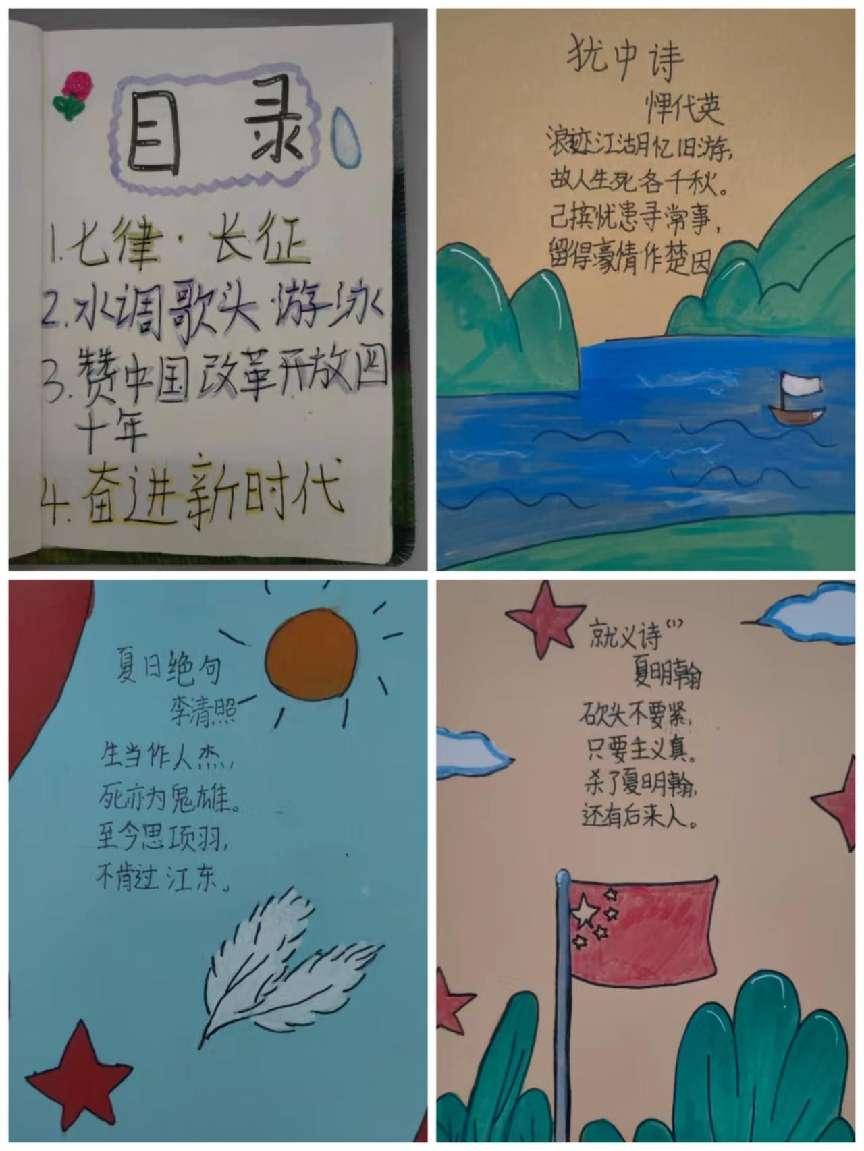 目录
1.七律·长征
2.水调歌头·游泳
3.赞中国改革开放四
十年
4.奋进新时代
犹中诗
恽代英
浪迹江湖月忆旧游,
故人生死各千秋。
己摈忧患寻常事,
留得豪情作楚因
夏日绝句
李清照
生当作人杰,
死亦为鬼雄。
至今思项羽,
不肯过江东。
就义诗(1)
夏明翰
砍头不要紧,
只要主义真。
杀了夏明翰,
还有后来人。